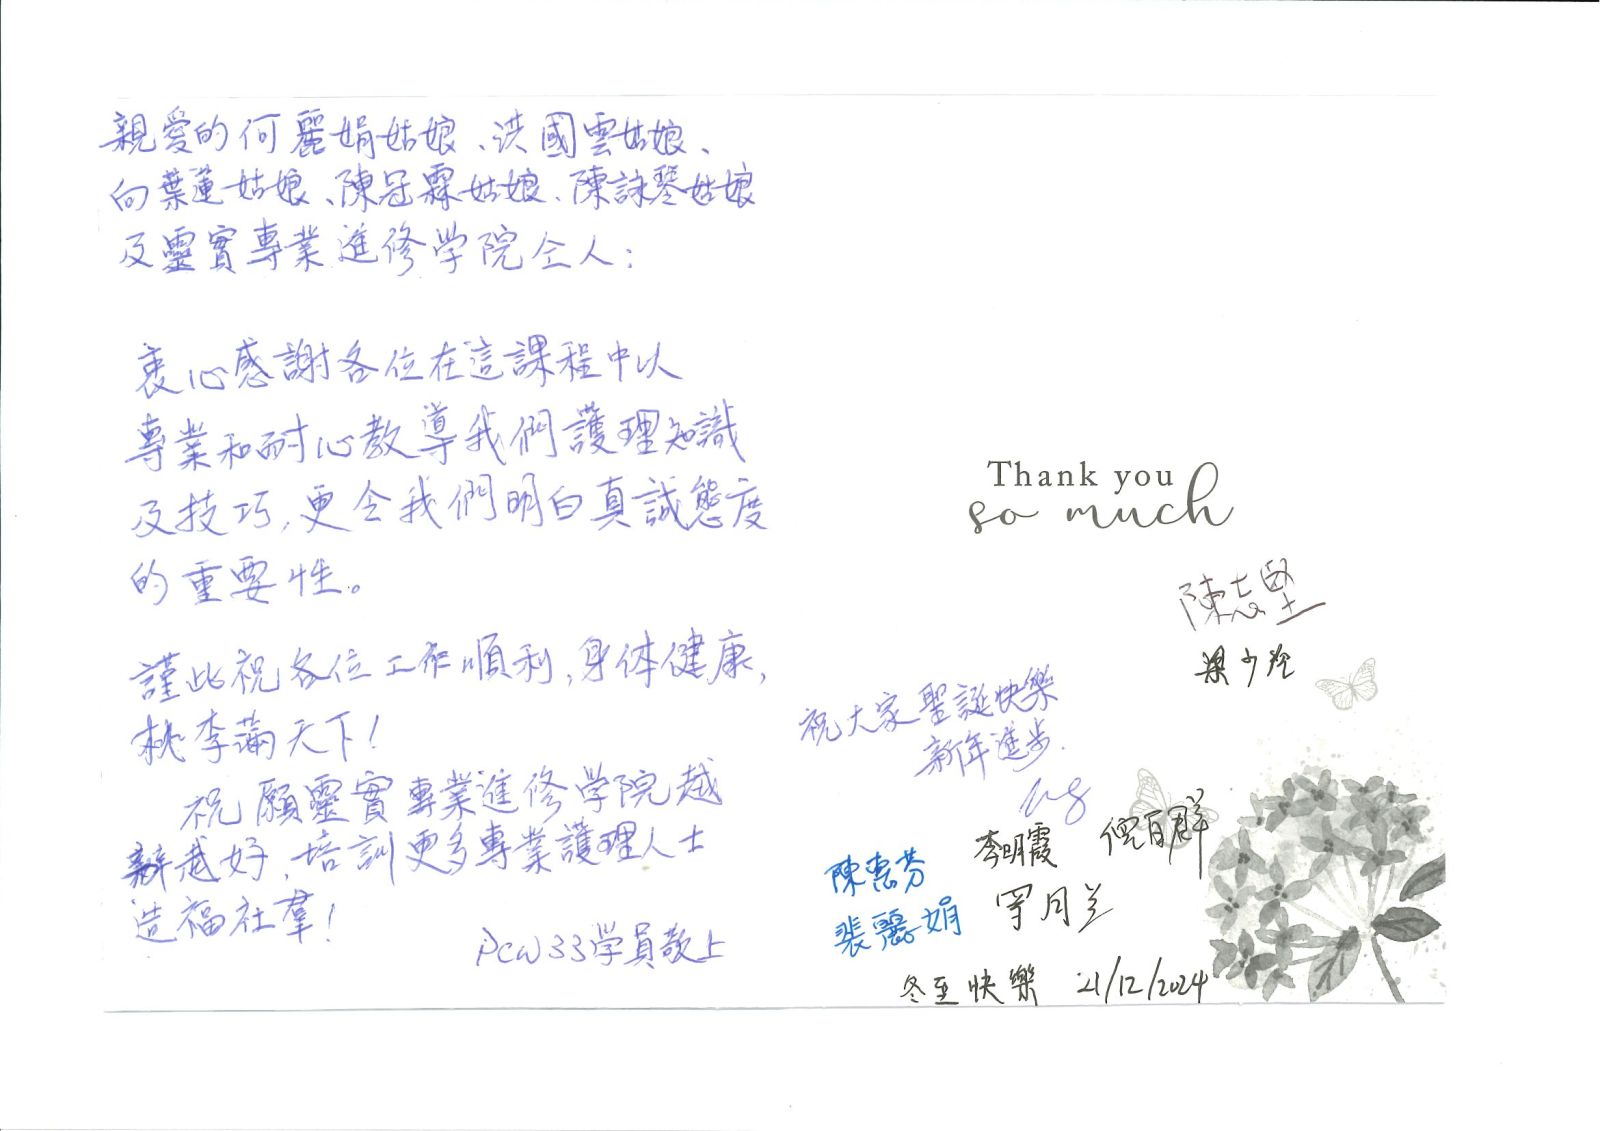 親愛的何麗娟姑娘、洪國雲姑娘、
向葉蓮姑娘、陳冠霖姑娘、陳詠琴姑娘
及靈實專業進修学院仝人：
衷心感謝各位在這課程中以
專業和耐心教導我們護理知識
及技巧，更令我們明白真誠態度
的重要性。
謹此祝各位工作順利，身体健康，
桃李滿天下！
祝願靈實專業進修学院越
辦越好，培訓更多專業護理人士
造福社羣！
PCW33学員敬上
Thank you
so much
陳志堅
梁少
祝大家聖誕快樂
新年進步.
李明霞
陳惠芬
裴麗娟
月兰
冬至快樂 21/12/2024